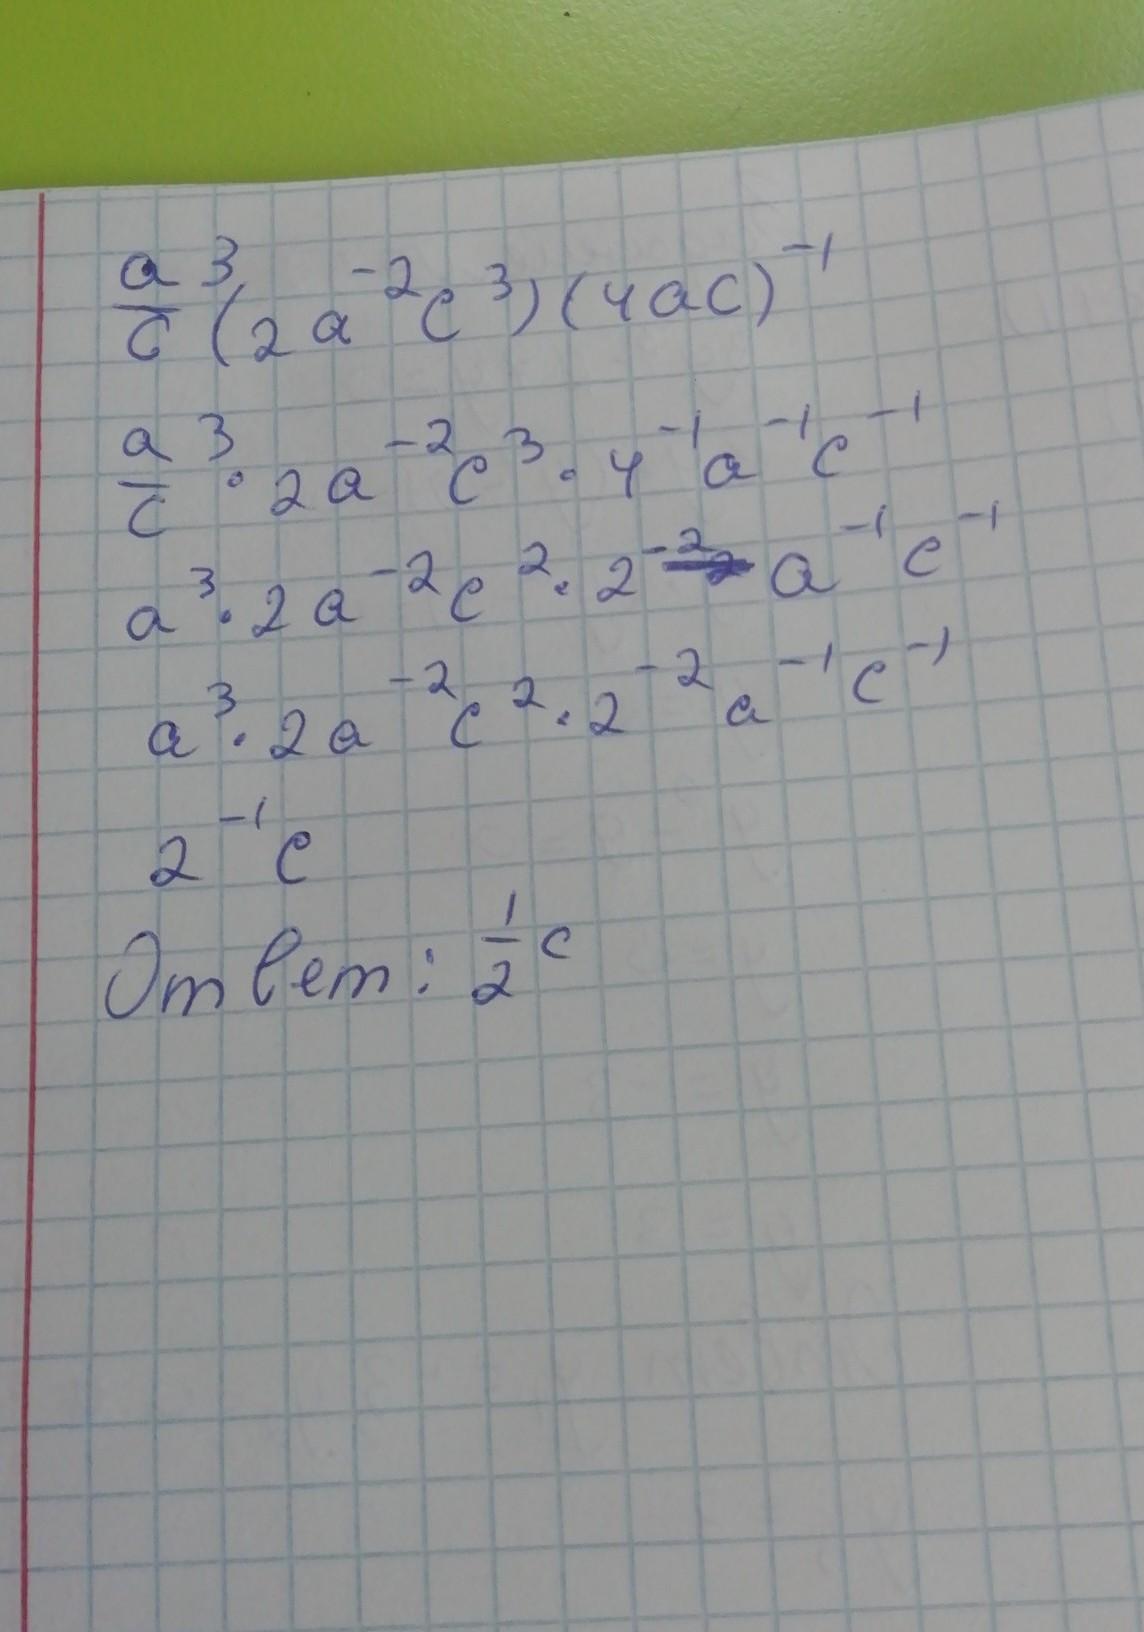 a³/c (2a⁻²c³)(4ac)⁻¹
a³/c · 2a⁻²c³ · 4⁻¹a⁻¹c⁻¹
a³ · 2a⁻²c² · 2⁻² a⁻¹c⁻¹
a³ · 2a⁻²c² · 2⁻²a⁻¹c⁻¹
2⁻¹c
Ответ: 1/2 c